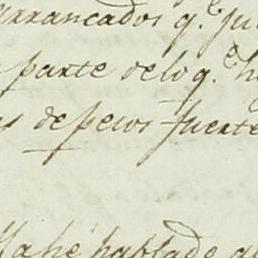 arrancados q.e Ju
parte delo q.e h
de pesos fuerte
ha hablado